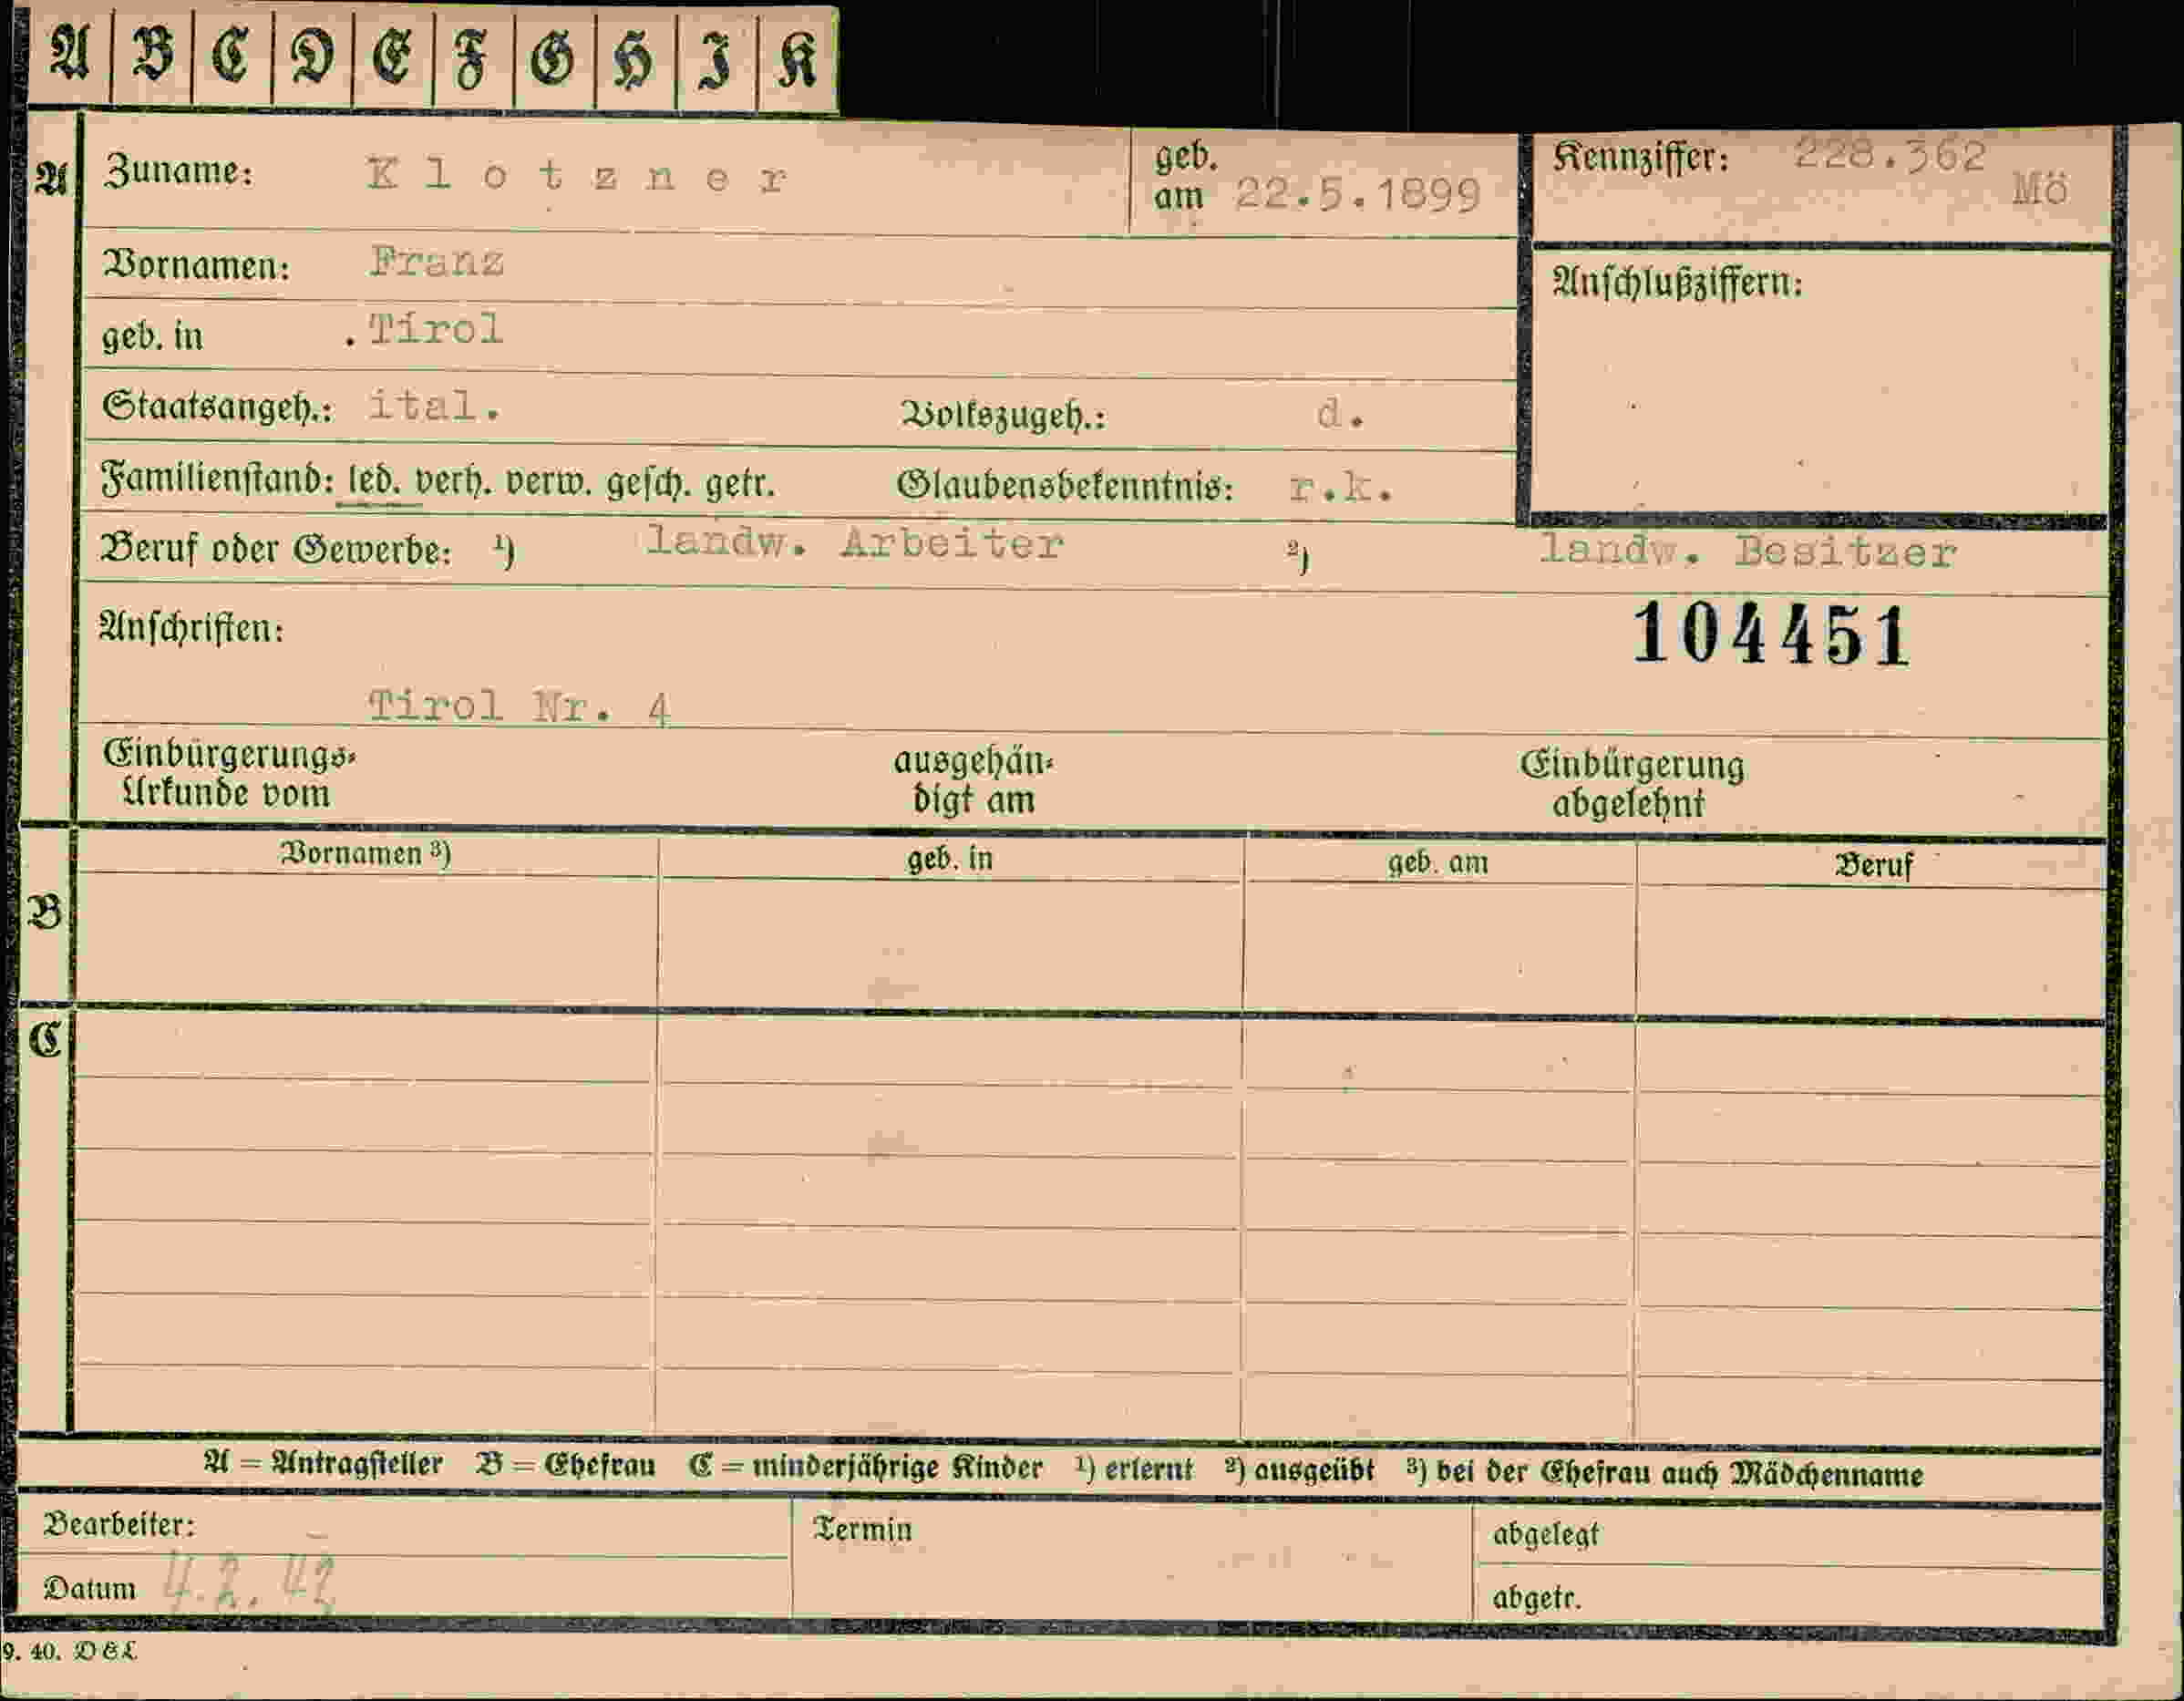 A B C D E F G H I K
A Zuname: Klotzner geb. am 22.5.1899 Kennziffer: 228.362 Mö
Vornamen: Franz Anschlußziffern:
geb. in . Tirol
Staatsangeh.: ital. Volkszugeh.: d.
Familienstand: led. verh. verw. gesch. getr. Glaubensbekenntnis: r.k.
Beruf oder Gewerbe: ¹) landw. Arbeiter ²) landw. Besitzer
Anschriften: 104451
Tirol Nr. 4
Einbürgerungs- ausgehän- Einbürgerung
Urkunde vom digt am abgelehnt
Vornamen ³) geb. in geb. am Beruf
B
C
A = Antragsteller B = Ehefrau C = minderjährige Kinder ¹) erlernt ²) ausgeübt ³) bei der Ehefrau auch Mädchenname
Bearbeiter: Termin abgelegt
Datum 4.2.42 abgetr.
9. 40. D&L